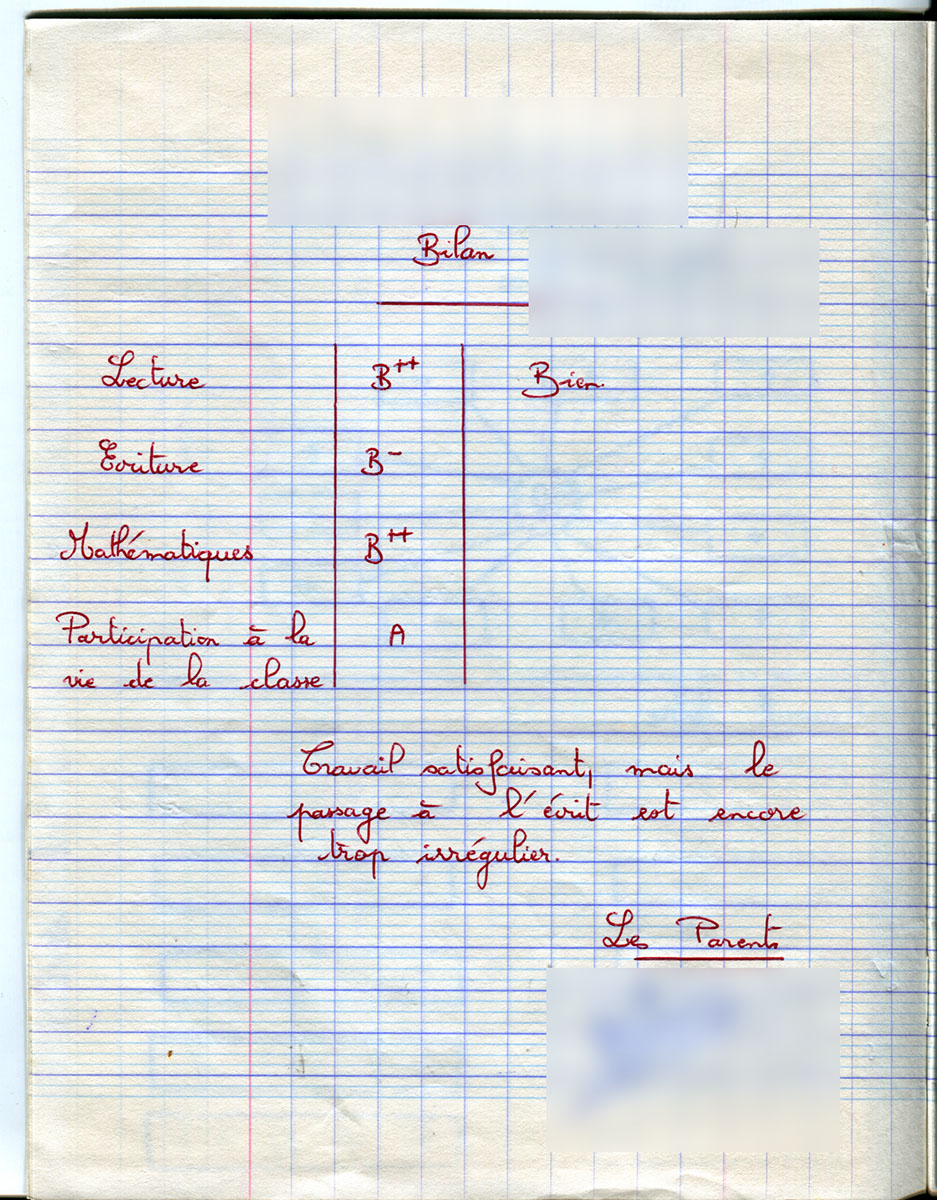 Bilan
Lecture B++ Bien.
Ecriture B-
Mathématiques B++
Participation à la A
vie de la classe
Travail satisfaisant, mais le
passage à l'écrit est encore
trop irrégulier.
Les Parents